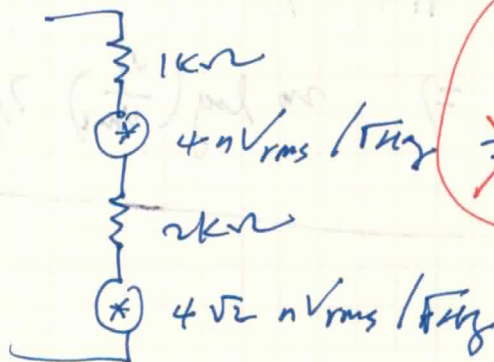 1KΩ
* 4 nVrms /√Hz
2KΩ
* 4√2 nVrms /√Hz